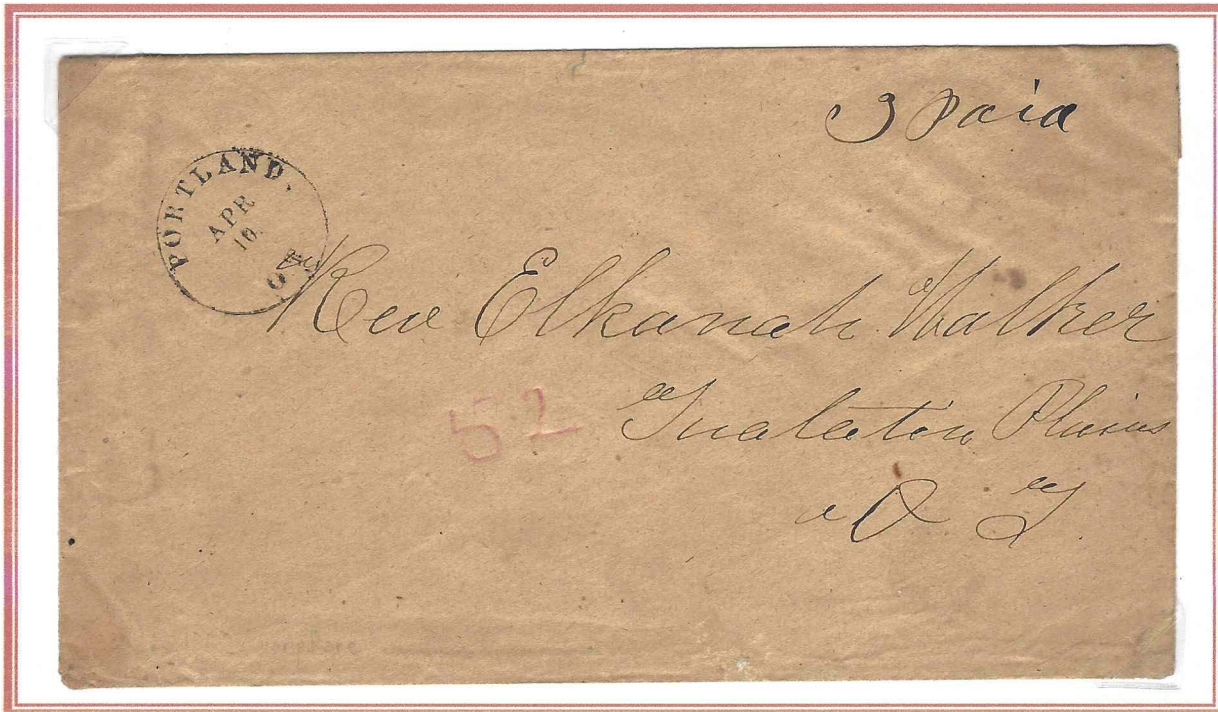 3 Paid
PORTLAND.
APR
10
O
Rev Elkanah Walker
52
Tualatin Plains
O T